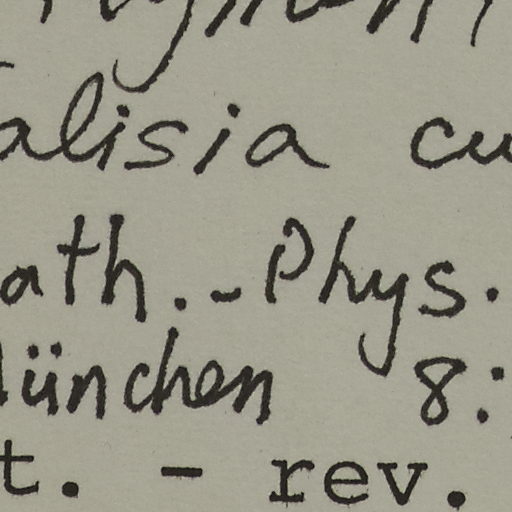 alisia cu
ath.-Phys.
ünchen 8:
t. - rev.